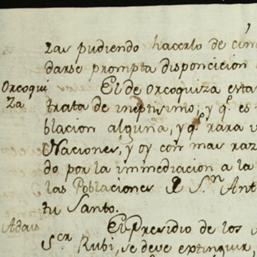 zas pudiendo hacerlo de cim
darse prompta disposicion
Orcoqui
za
El de Orcoquiza esta
trata de ineptisimo; y q.e es
blacion alguna, y q.e rara v
Naciones, y oy con mas raz
do por la immediacion a la
las Poblaciones de S.n Ant
tu Santo.
Adais
El Presidio de los
ser Rubi, se deve extinguir,